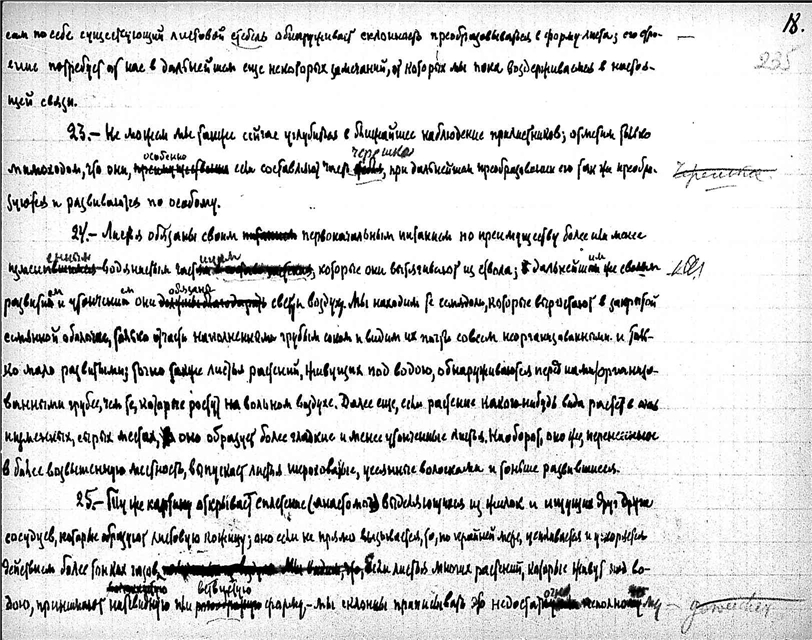 18.
235
сам по себе существующий листовой стебель обнаруживает склонность преобразовываться в форму листа; это
ение потребует от нас в дальнейшем еще некоторых замечаний, от которых мы пока воздерживаемся в настоя-
щей связи.
23.— Не можем мы также сейчас углубиться в ближайшее наблюдение прилистников; отметим только
мимоходом, что они, особенно если составляют часть черешка, при дальнейшем преобразовании его так же преобра-
зуются и развиваются по особому.
Черешка
24.— Листья обязаны своим первоначальным питанием по преимуществу более или менее
водянистым частицам, которые они вытягивают из ствола; дальнейшим же своим
развитием и утончением они обязаны свету и воздуху. Мы находим те семядоли, которые вырастают в закрытой
семянной оболочке, только отчасти наполненными грубым соком и видим их почти совсем неорганизованными и толь-
ко мало развитыми; точно также листья растений, живущих под водою, обнаруживаются перед нами организо-
ванными грубее, чем те, которые растут на вольном воздухе. Далее еще, если растение какого-нибудь вида растет в
низменных, сырых местах, оно образует более гладкие и менее утонченные листья. Наоборот, оно же перенесенное
в более возвышенную местность, выпускает листья шероховатые, усеянные волосками и тоньше развившиеся.
25.— Ту же картину открывает сплетение (анастомоз) выделяющихся из жилок и ищущих друг друга
сосудцев, которые образуют листовую кожицу; оно если не прямо вызывается, то, по крайней мере, усиливается и ускоряется
действием более тонких газов. Если листья многих растений, которые живут под во-
дою, принимают нитевидную или ветвистую форму,— мы склонны приписывать это недостаточно